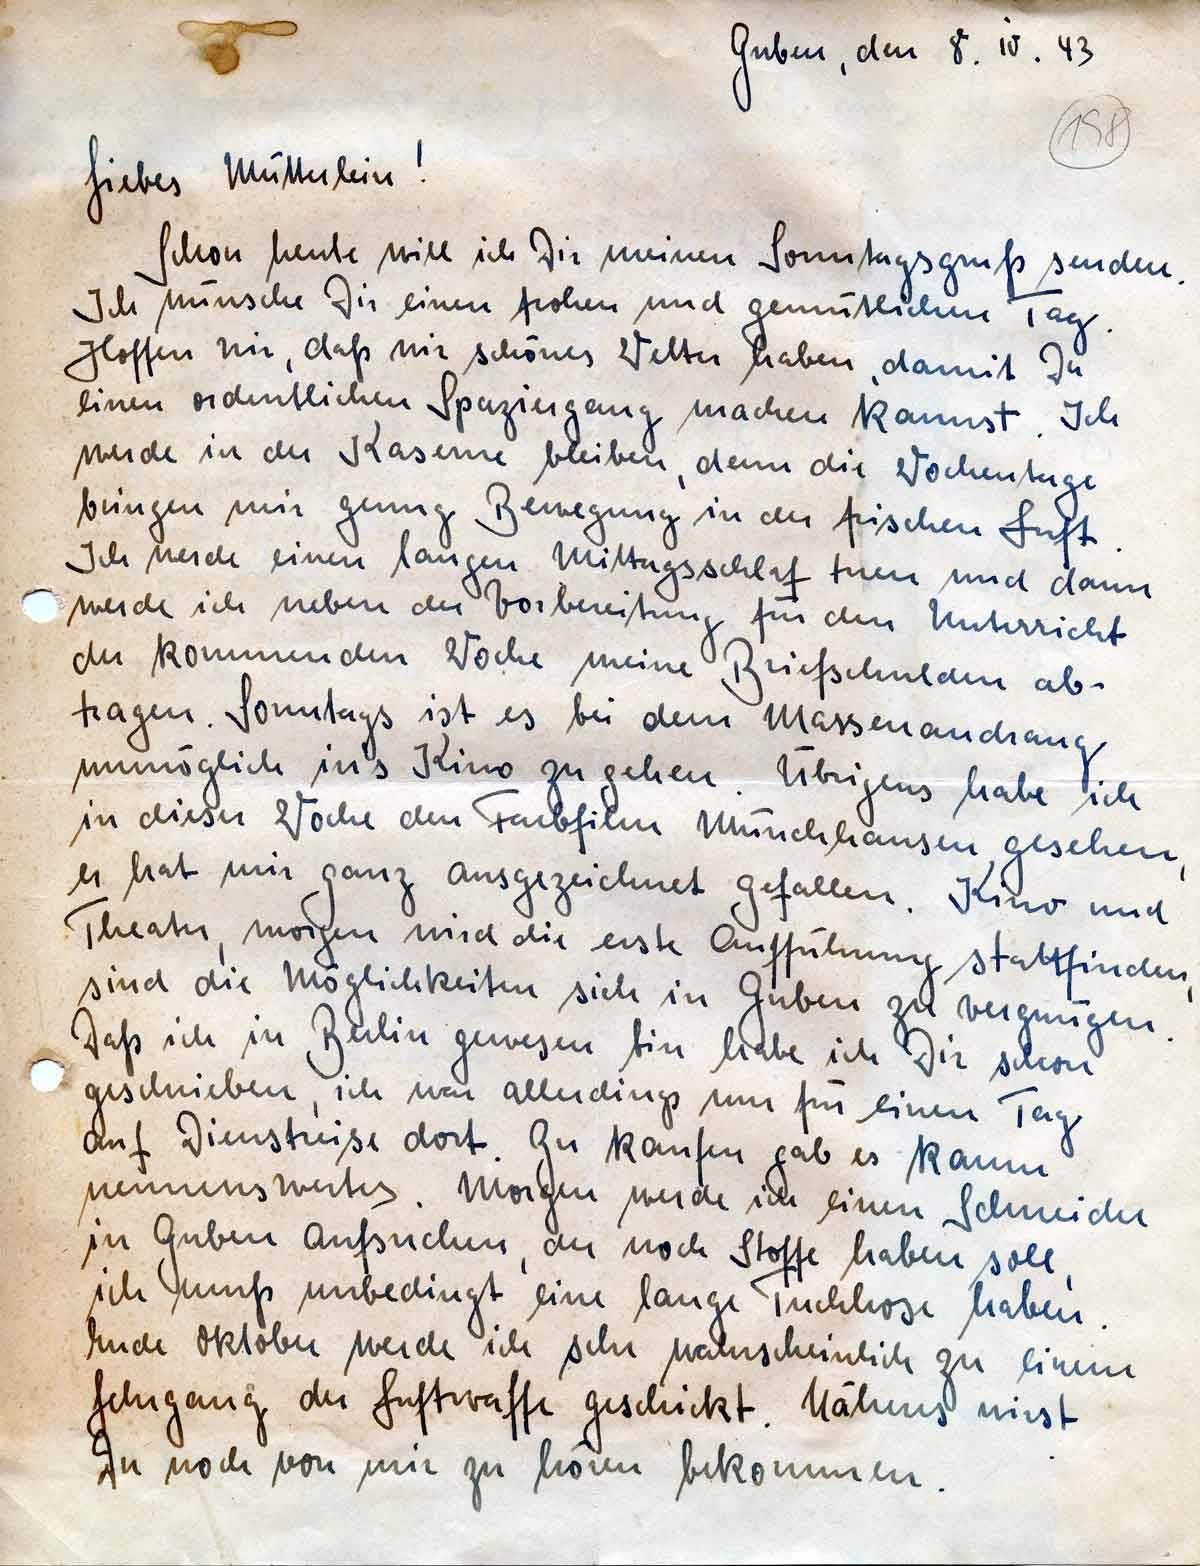 Guben, den 8. IV. 43
158
Liebes Mütterlein!
Schon heute will ich Dir meinen Sonntagsgruß senden.
Ich wünsche Dir einen frohen und gemütlichen Tag.
Hoffen wir, daß wir schönes Wetter haben, damit Du
einen ordentlichen Spaziergang machen kannst. Ich
werde in der Kaserne bleiben, denn die Wochentage
bringen mir genug Bewegung in der frischen Luft.
Ich werde einen langen Mittagsschlaf tuen und dann
werde ich neben der Vorbereitung für den Unterricht
der kommenden Woche meine Briefschulden ab-
tragen. Sonntags ist es bei dem Massenandrang
unmöglich in's Kino zu gehen. Übrigens habe ich
in dieser Woche den Farbfilm Münchhausen gesehen,
er hat mir ganz ausgezeichnet gefallen. Kino und
Theater, morgen wird die erste Aufführung stattfinden,
sind die Möglichkeiten sich in Guben zu vergnügen.
Daß ich in Berlin gewesen bin habe ich Dir schon
geschrieben, ich war allerdings nur für einen Tag
auf Dienstreise dort. Zu kaufen gab es kaum
nennenswertes. Morgen werde ich einen Schneider
in Guben aufsuchen, der noch Stoffe haben soll,
ich muß unbedingt eine lange Tuchhose haben.
Ende Oktober werde ich sehr wahrscheinlich zu einem
Lehrgang der Luftwaffe geschickt. Näheres wirst
Du noch von mir zu hören bekommen.